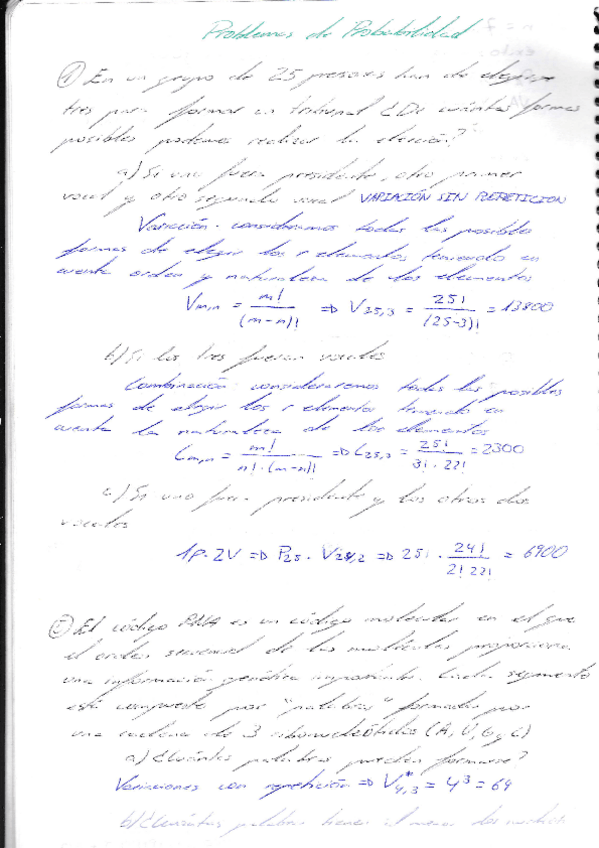 Problemas de Probabilidad
① En un grupo de 25 personas han de elegirse
tres para formar un tribunal ¿De cuántas formas
posibles podemos realizar la elección?
a) Si uno fuera presidente, otro primer
vocal y otro segundo vocal VARIACIÓN SIN REPETICION
Variación: consideramos todas las posibles
formas de elegir los r elementos teniendo en
cuenta orden y naturaleza de los elementos
Vm,n = m! / (m-n)! => V25,3 = 25! / (25-3)! = 13800
b) Si los tres fueran vocales
Combinación: consideraremos todas las posibles
formas de elegir los r elementos teniendo en
cuenta la naturaleza de los elementos
Cm,n = m! / n!·(m-n)! => C25,3 = 25! / 3!·22! = 2300
c) Si uno fuera presidente y los otros dos
vocales
1P·2V => P25 · V24,2 => 25· 24! / 2! 22! = 6900
⑤ El código RNA es un código molecular en el que
el orden secuencial de las moléculas proporciona
una información genética importante. Cada segmento
está compuesto por "palabras" formadas por
una cadena de 3 ribonucleótidos (A, U, G y C)
a) ¿Cuántas palabras pueden formarse?
Variaciones con repetición => V*4,3 = 4³ = 64
b) ¿Cuántas palabras tienen al menos dos